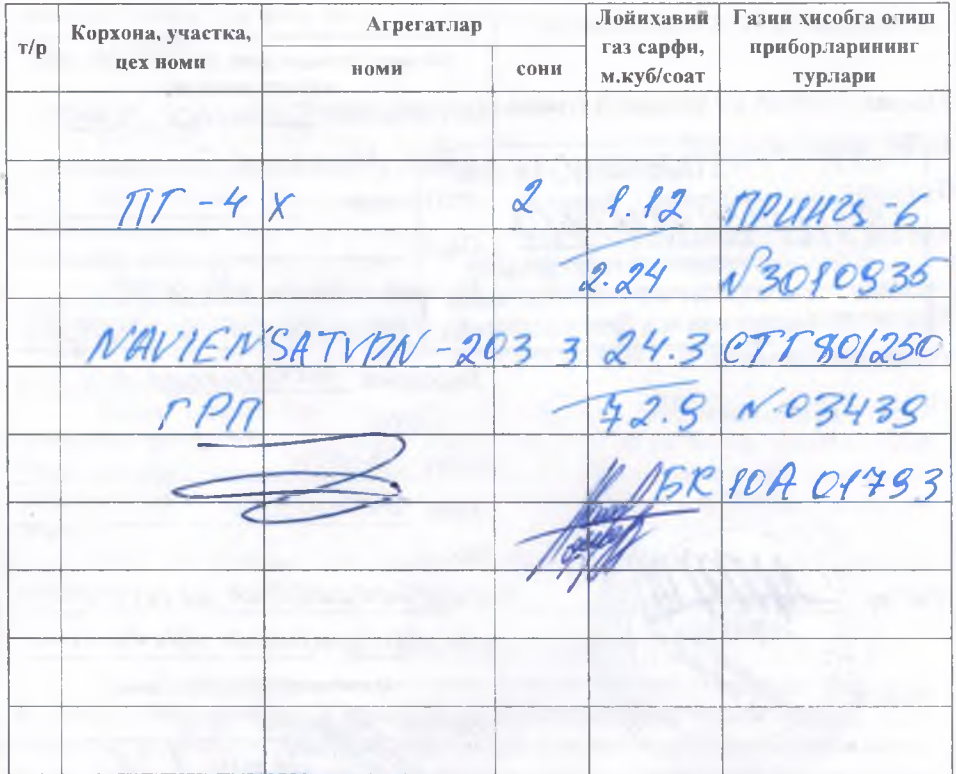 т/р Корхона, участка, цех номи Агрегатлар Лойиҳавий газ сарфи, м.куб/соат Газни ҳисобга олиш приборларининг турлари
номи сони
ПГ-4 X 2 1.12 ПРИНЦ-6
2.24 №3010935
NAVIEN SATVPN-203 3 24.3 СТГ 80/250
ГРП 72.9 №03439
БК 10А 01793